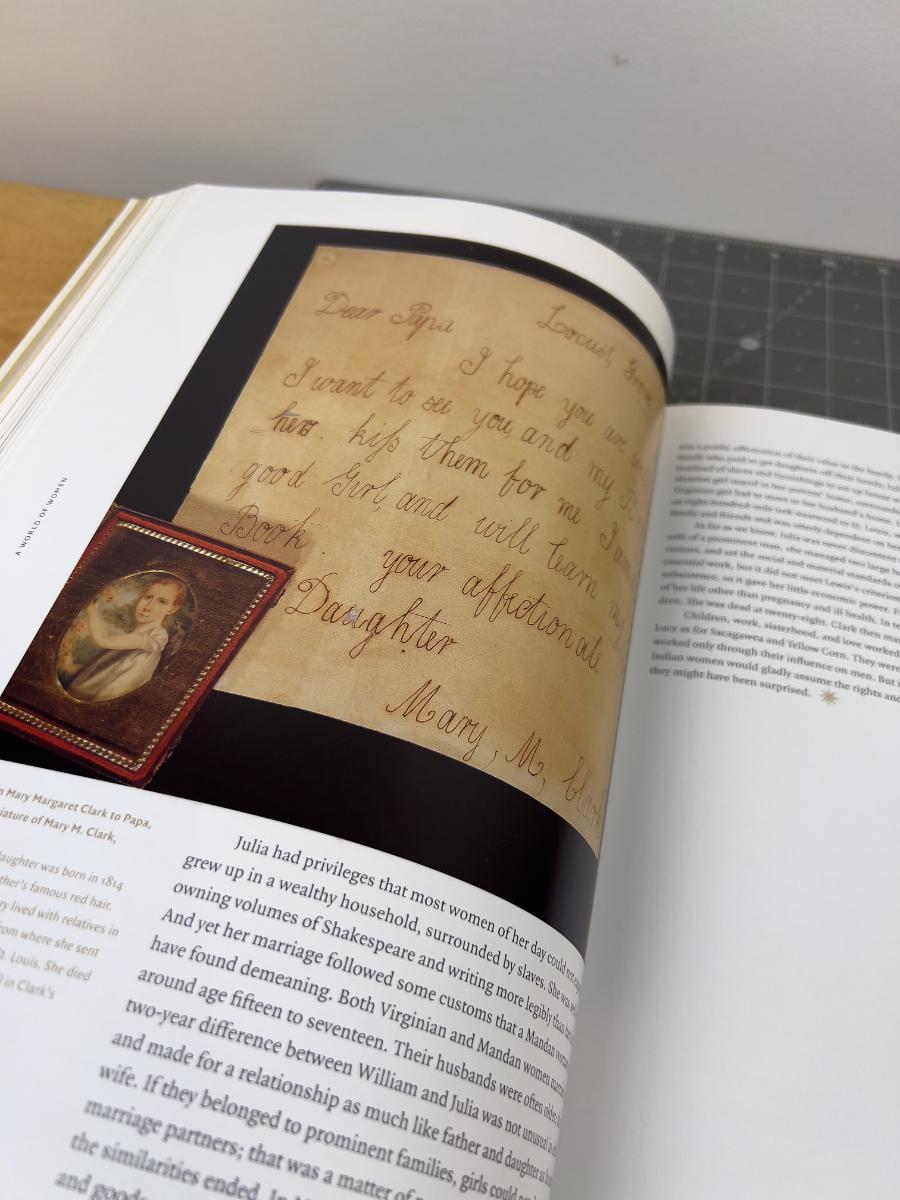 A WORLD OF WOMEN
Dear Papa
Locust, Grove
I hope you are
I want to see you, and my
hers. kiſs them for me. I am
good Girl, and will learn my
Book. your affectionate
Daughter
Mary, M, Clark
Mary Margaret Clark to Papa,
miniature of Mary M. Clark,
daughter was born in 1814
famous red hair.
lived with relatives in
from where she sent
St. Louis. She died
in Clark's
Julia had privileges that most women of her day could not
grew up in a wealthy household, surrounded by slaves. She was
owning volumes of Shakespeare and writing more legibly than
And yet her marriage followed some customs that a Mandan
have found demeaning. Both Virginian and Mandan women
around age fifteen to seventeen. Their husbands were often older
two-year difference between William and Julia was not unusual
and made for a relationship as much like father and daughter as
wife. If they belonged to prominent families, girls could not
marriage partners; that was a matter of
the similarities ended. In
and goods
was a public affirmation of their value to the family,
who paid to get daughters off their hands;
of slaves and furnishings to set up house
girl stayed in her parents'
Virginian girl had to move to her husband's home.
an eight-hundred-mile trek westward to St. Louis,
family and friends and was utterly dependent on
As far as we know, Julia was never discontented
wife of a prominent man, she managed two large
visitors, and set the social and material standards
essential work, but it did not meet Lewis's criterion
subsistence, so it gave her little economic power.
of her life other than pregnancy and ill health. In
dren. She was dead at twenty-eight. Clark then
Children, work, sisterhood, and love worked
Lucy as for Sacagawea and Yellow Corn. They were
worked only through their influence on men. But
Indian women would gladly assume the rights and
they might have been surprised.